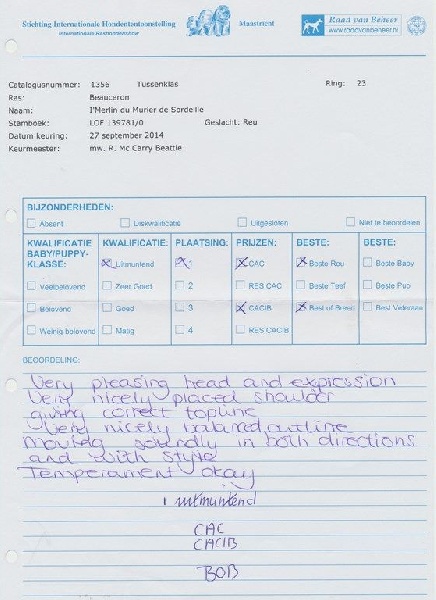 Stichting Internationale Hondententoonstelling Maastricht
Raad van Beheer
Catalogusnummer: 1356 Tussenklas Ring: 23
Ras: Beauceron
Naam: I'Merlin du Murier de Sordeille
Stamboek: LOF 139781/0 Geslacht: Reu
Datum keuring: 27 september 2014
Keurmeester: mw. R. Mc Carry Beattie
BIJZONDERHEDEN:
Absent Diskwalificatie Uitgesloten Niet te beoordelen
KWALIFICATIE BABY/PUPPY-KLASSE: KWALIFICATIE: PLAATSING: PRIJZEN: BESTE: BESTE:
Uitmuntend 1 CAC Beste Reu Beste Baby
Veelbelovend Zeer Goed 2 RES CAC Beste Teef Beste Pup
Belovend Goed 3 CACIB Best of Breed Best Veteraan
Weinig belovend Matig 4 RES CACIB
BEOORDELING:
Very pleasing head and expression
Very nicely placed shoulder
giving correct topline
Very nicely balanced outline
Moving soundly in both directions
and with style
Temperament okay
1 uitmuntend
CAC
CACIB
BOB